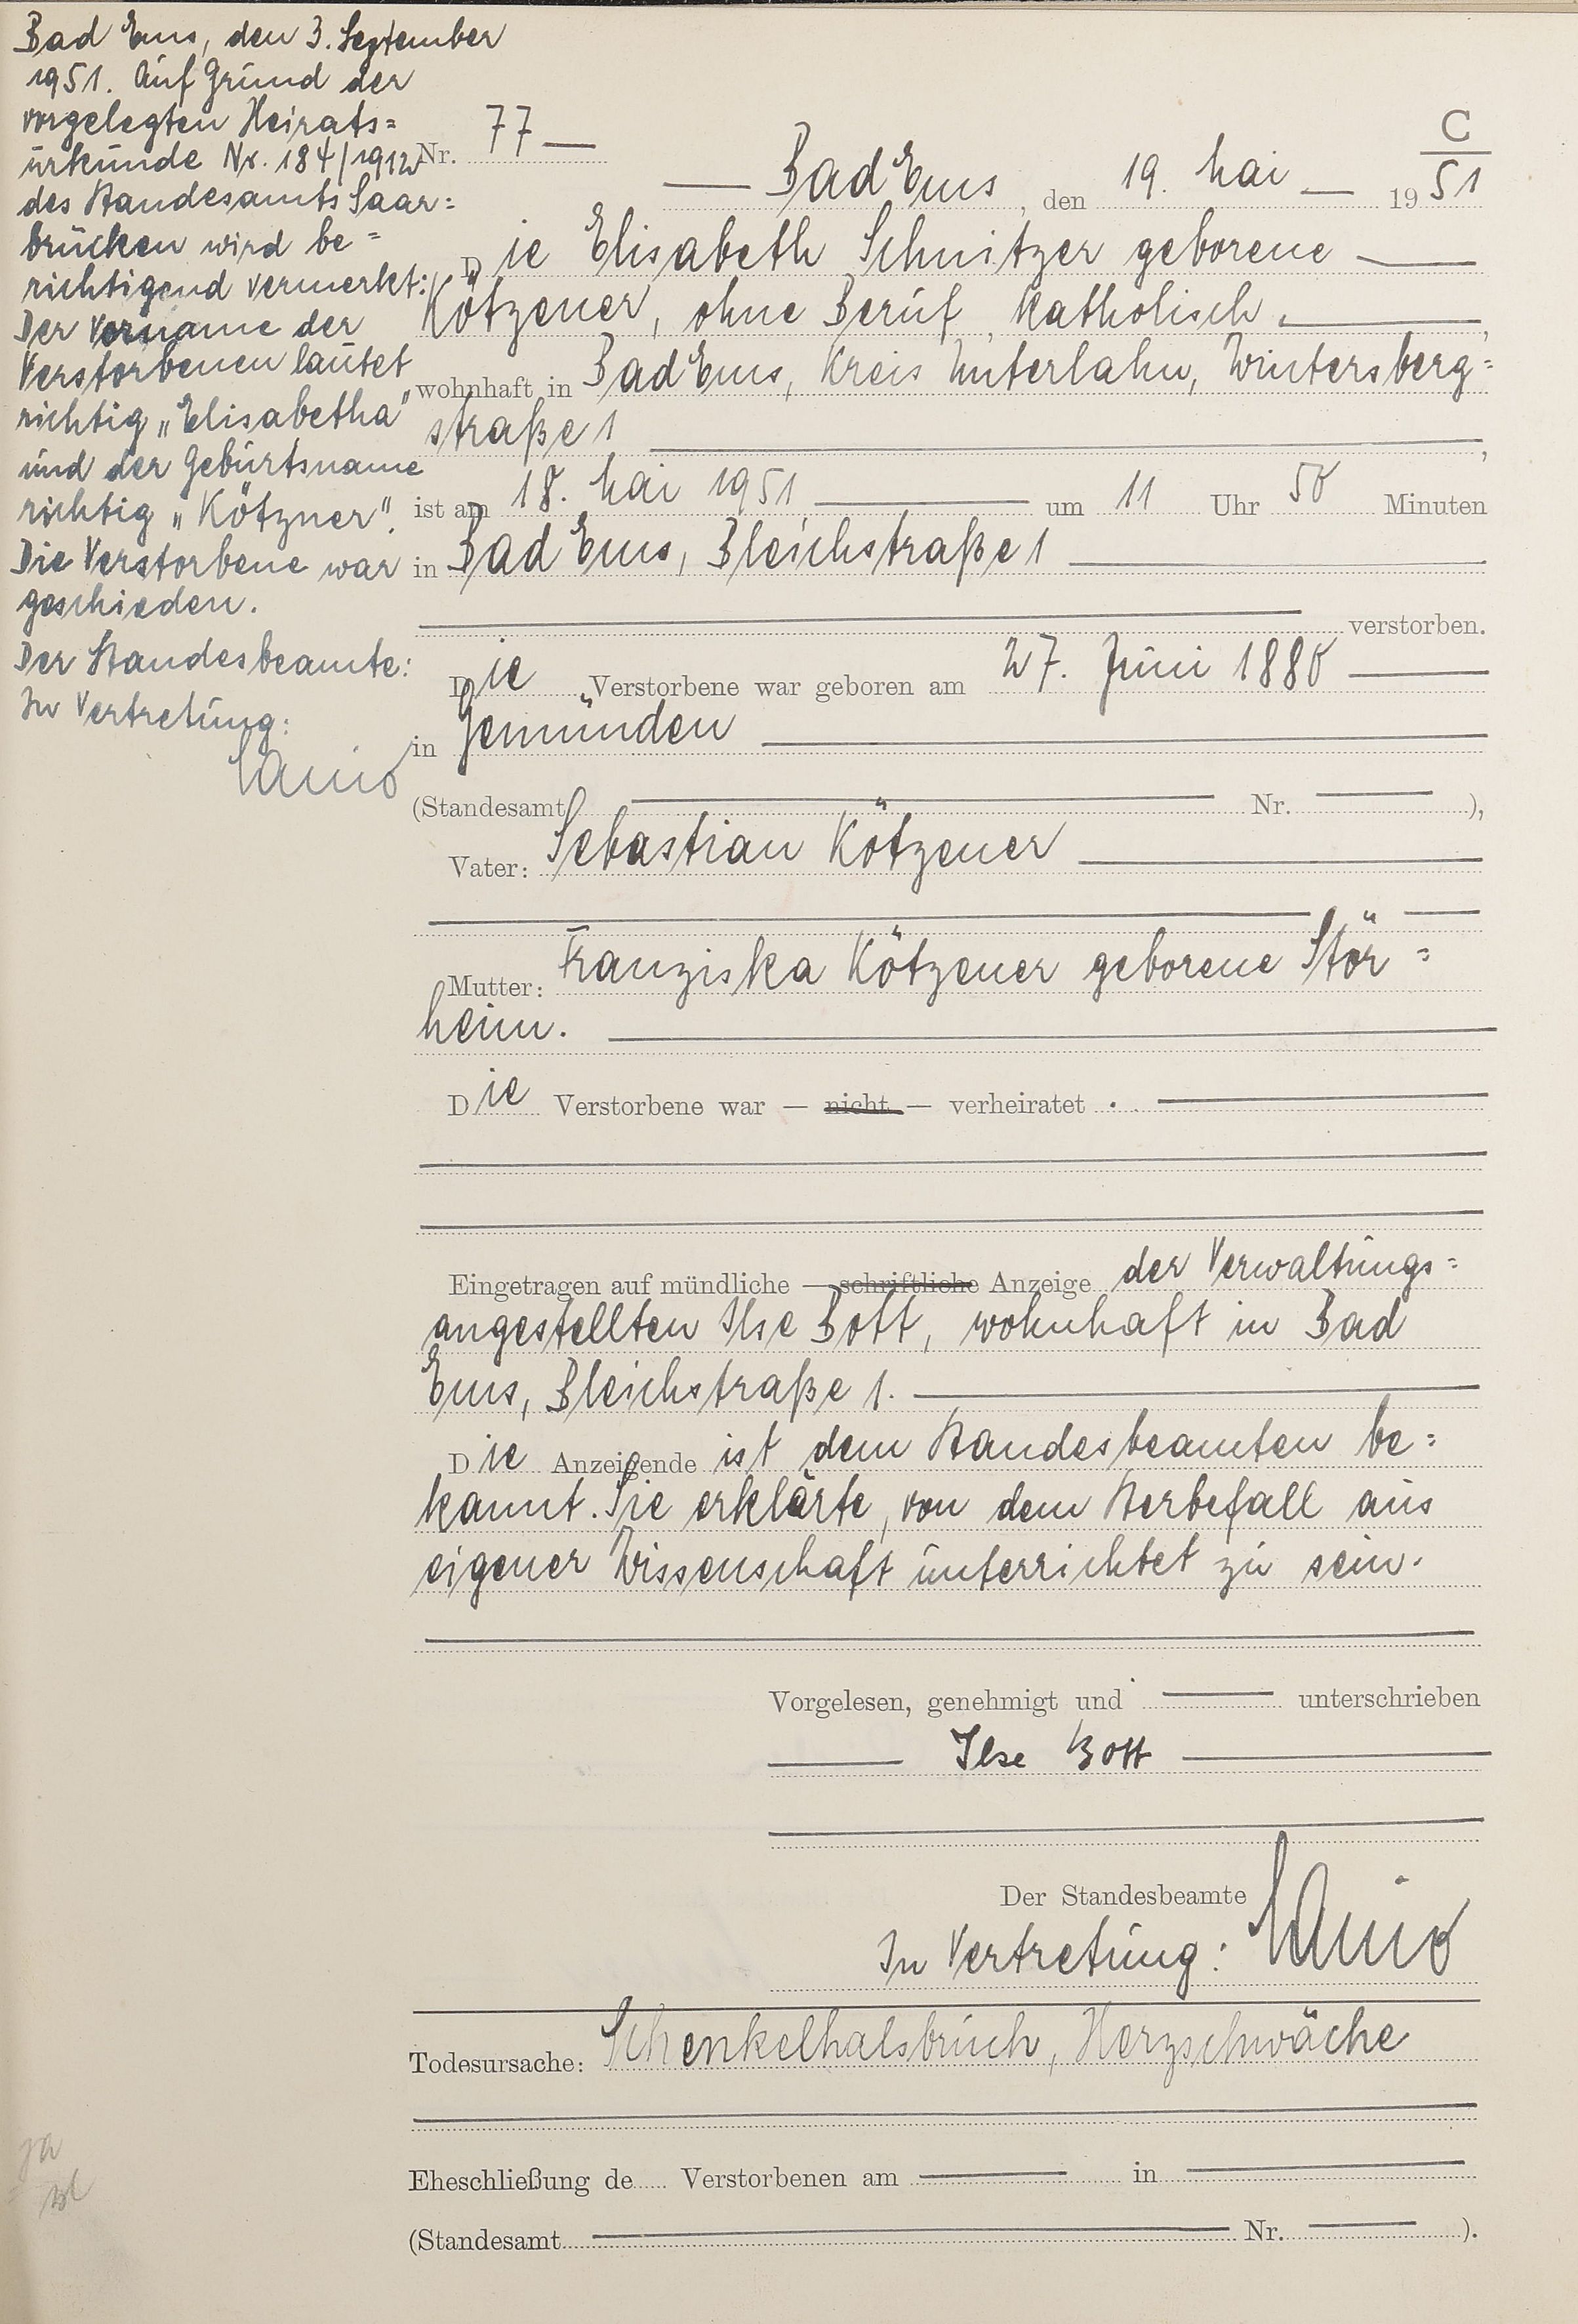 Bad Ems, den 3. September
1951. Auf Grund der
vorgelegten Heirats=
urkunde Nr. 184/1912
des Standesamts Saar=
brücken wird be=
richtigend vermerkt:
Der Vorname der
Verstorbenen lautet
richtig „Elisabetha"
und der Geburtsname
richtig „Kötzner".
Die Verstorbene war
geschieden.
Der Standesbeamte:
In Vertretung:
C
Nr. 77
Bad Ems, den 19. Mai 1951
Die Elisabeth Schnitzer geborene
Kötzener, ohne Beruf, katholisch,
wohnhaft in Bad Ems, Kreis Unterlahn, Wintersberg=
straße 1,
ist am 18. Mai 1951 um 11 Uhr 50 Minuten
in Bad Ems, Bleichstraße 1
verstorben.
Die Verstorbene war geboren am 27. Juni 1880
in Gemünden
(Standesamt Nr. ),
Vater: Sebastian Kötzener
Mutter: Franziska Kötzener geborene Stör=
heim.
Die Verstorbene war — nicht — verheiratet.
Eingetragen auf mündliche — schriftliche Anzeige der Verwaltungs=
angestellten Ilse Bott, wohnhaft in Bad
Ems, Bleichstraße 1.
Die Anzeigende ist dem Standesbeamten be=
kannt. Sie erklärte, von dem Sterbefall aus
eigener Wissenschaft unterrichtet zu sein.
Vorgelesen, genehmigt und unterschrieben
Ilse Bott
Der Standesbeamte
In Vertretung:
Todesursache: Schenkelhalsbruch, Herzschwäche
Eheschließung de Verstorbenen am in
(Standesamt Nr. ).